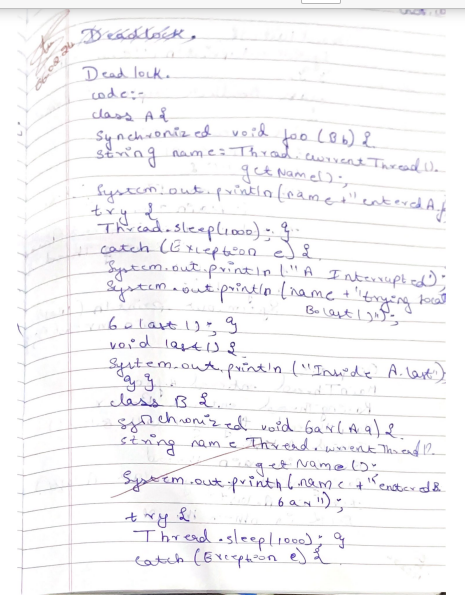 Deadlock.
Dead lock.
code:-
class A {
Synchronized void foo (B b) {
string name = Thread.currentThread().
getName();
System.out.println (name + "entered A.f
try {
Thread.sleep(1000); }
catch (Exception e) {
System.out.println ("A Interrupted");
System.out.println (name + "trying to cal
B.last()");
b.last(); }
void last() {
System.out.println ("Inside A.last")
} }
class B {
Synchronized void bar(A a) {
string name Thread.current Thread().
get Name();
System.out.println (name + "entered B
bar");
try {
Thread.sleep(1000); }
catch (Exception e) {